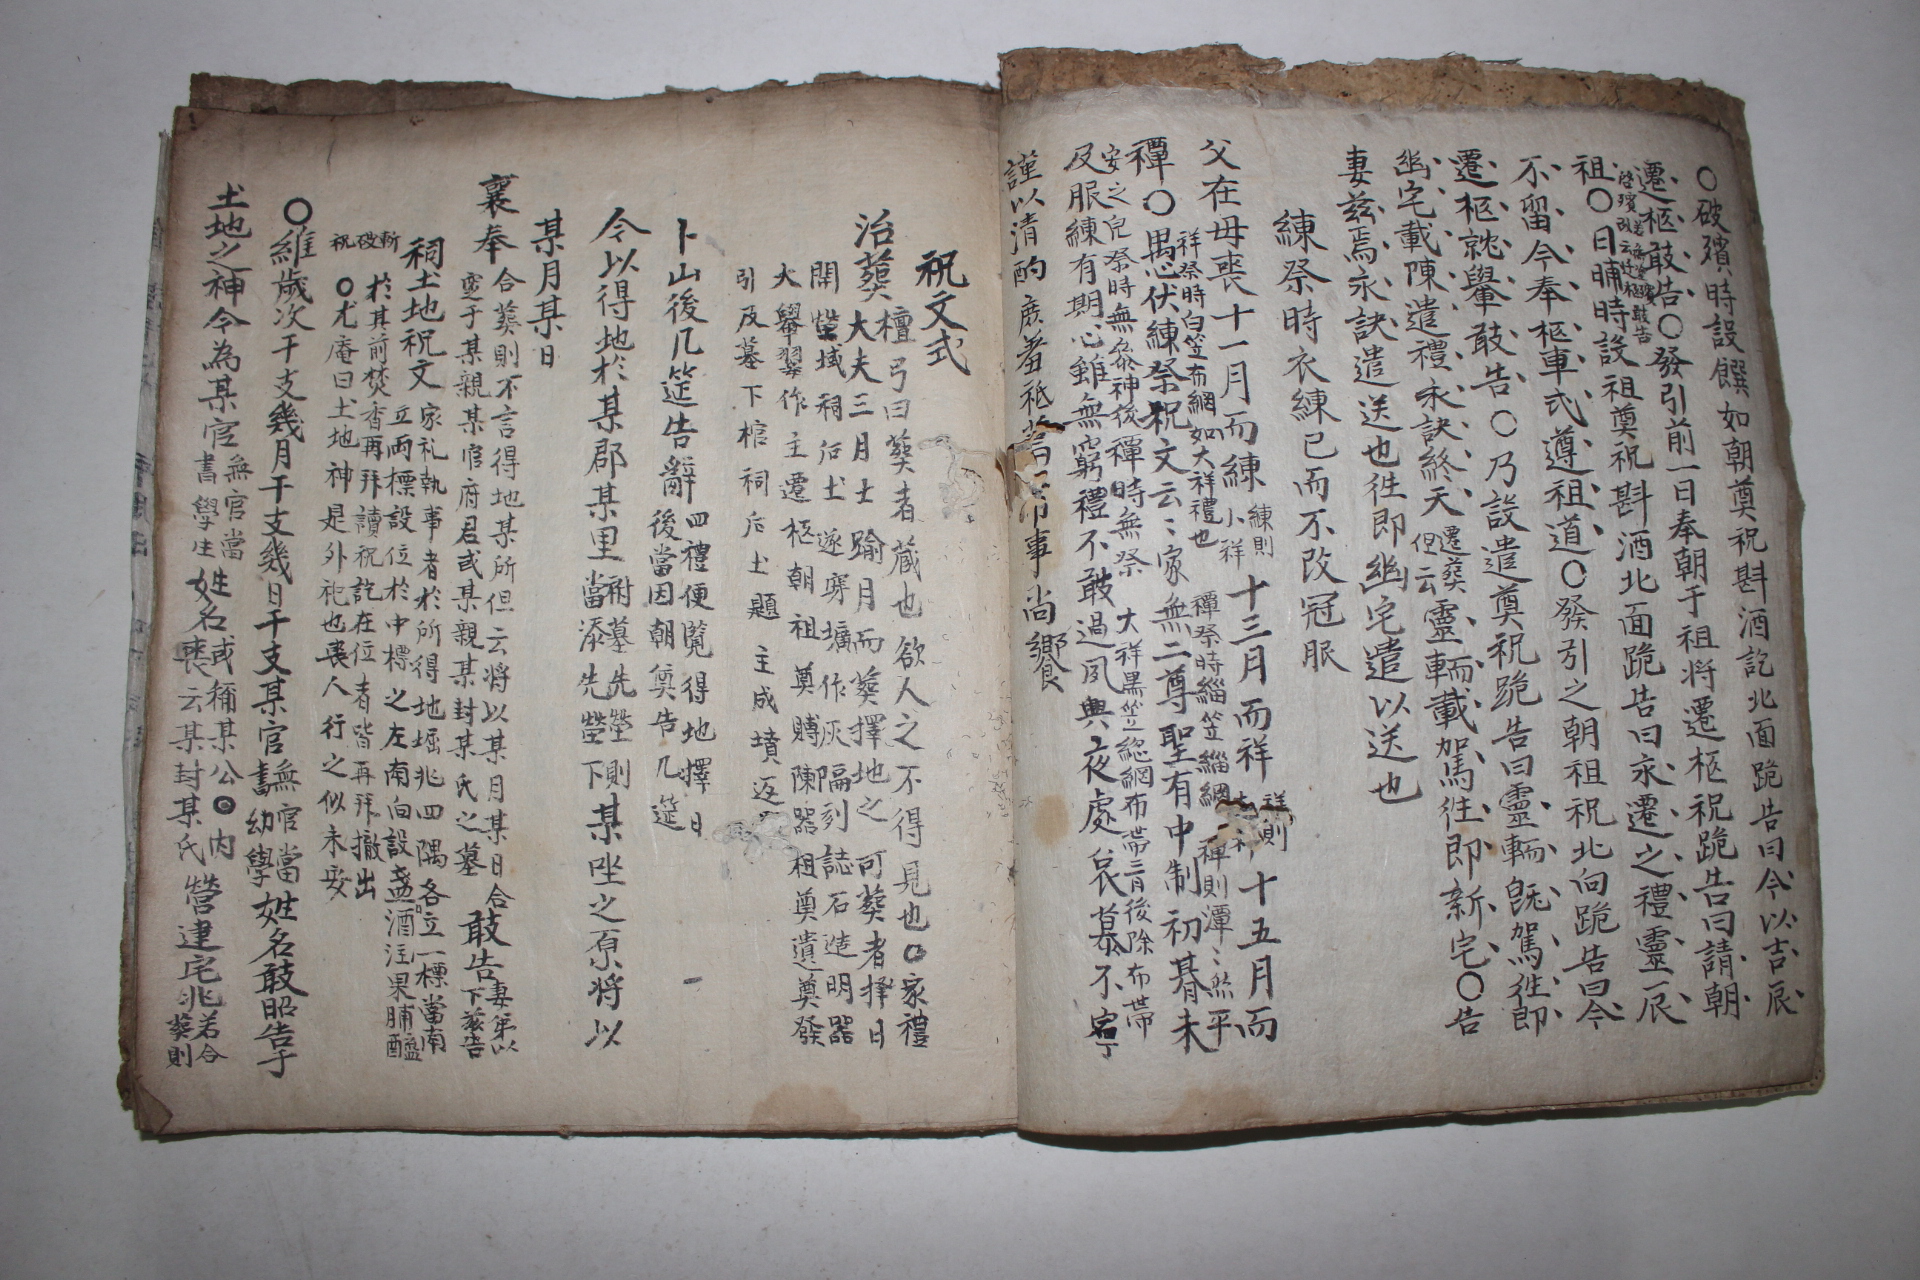 ○破殯時設饌如朝奠祝斟酒訖北面跪告曰今以吉辰
遷柩敢告○發引前一日奉朝于祖將遷柩祝跪告曰請朝
祖○日晡時設祖奠祝斟酒北面跪告曰永遷之禮靈辰
不留今奉柩車式遵祖道○發引之朝祖祝北向跪告曰今
遷柩就轝敢告○乃設遣奠祝跪告曰靈輀旣駕徃卽
幽宅載陳遣禮永訣終天
遷葬
但云
靈輀載駕徃卽新宅○告
妻茲焉永訣遣送也徃卽幽宅遣以送也
練祭時衣練已而不改冠服
父在母喪十一月而練
練則
小祥
十三月而祥
祥則
十五月而
禫
祥祭時白笠布網如大祥禮也
禫祭時緇笠緇網
禫則潭〻然平
安之皃祭時無祭神後禫時無祭
大祥黑笠緫網布帶三月後除布帶
○禺心伏練祭祝文云〻家無二尊聖有中制初朞未
及服練有期心雖無窮禮不敢過夙興夜處哀慕不寧
謹以清酌庶羞祇薦常事尙饗
祝文式
治葬
檀弓曰葬者藏也欲人之不得見也○家禮
大夫三月士踰月而葬擇地之可葬者擇日
開塋域祠后土遂穿壙作灰隔刻誌石造明器
大轝翣作主遷柩朝祖奠賻陳器祖奠遺奠發
引及墓下棺祠后土題主成墳返
卜山後几筵告辭
四禮便覽得地擇日
後當因朝奠告几筵
今以得地於某郡某里
祔葬先塋則
當添先塋下
某坐之原將以
某月某日
襄奉
合葬則不言得地某所但云將以某月某日合
窆于某親某官府君或某親某封某氏之墓
敢告
妻第以
下茲告
祠土地祝文
家礼執事者於所得地堀兆四隅各立一標當南
立兩標設位於中標之左南向設盞酒注果脯醢
於其前焚香再拜讀祝訖在位者皆再拜撤出
斬破祝
○尤庵曰土地神是外祀也喪人行之似未安
○維歲次干支幾月干支幾日干支某官
無官當
書幼學
姓名敢昭告于
土地之神今為某官
無官當
書學生
姓名
或稱某公○內
喪云某封某氏
營建宅兆
若合
葬則